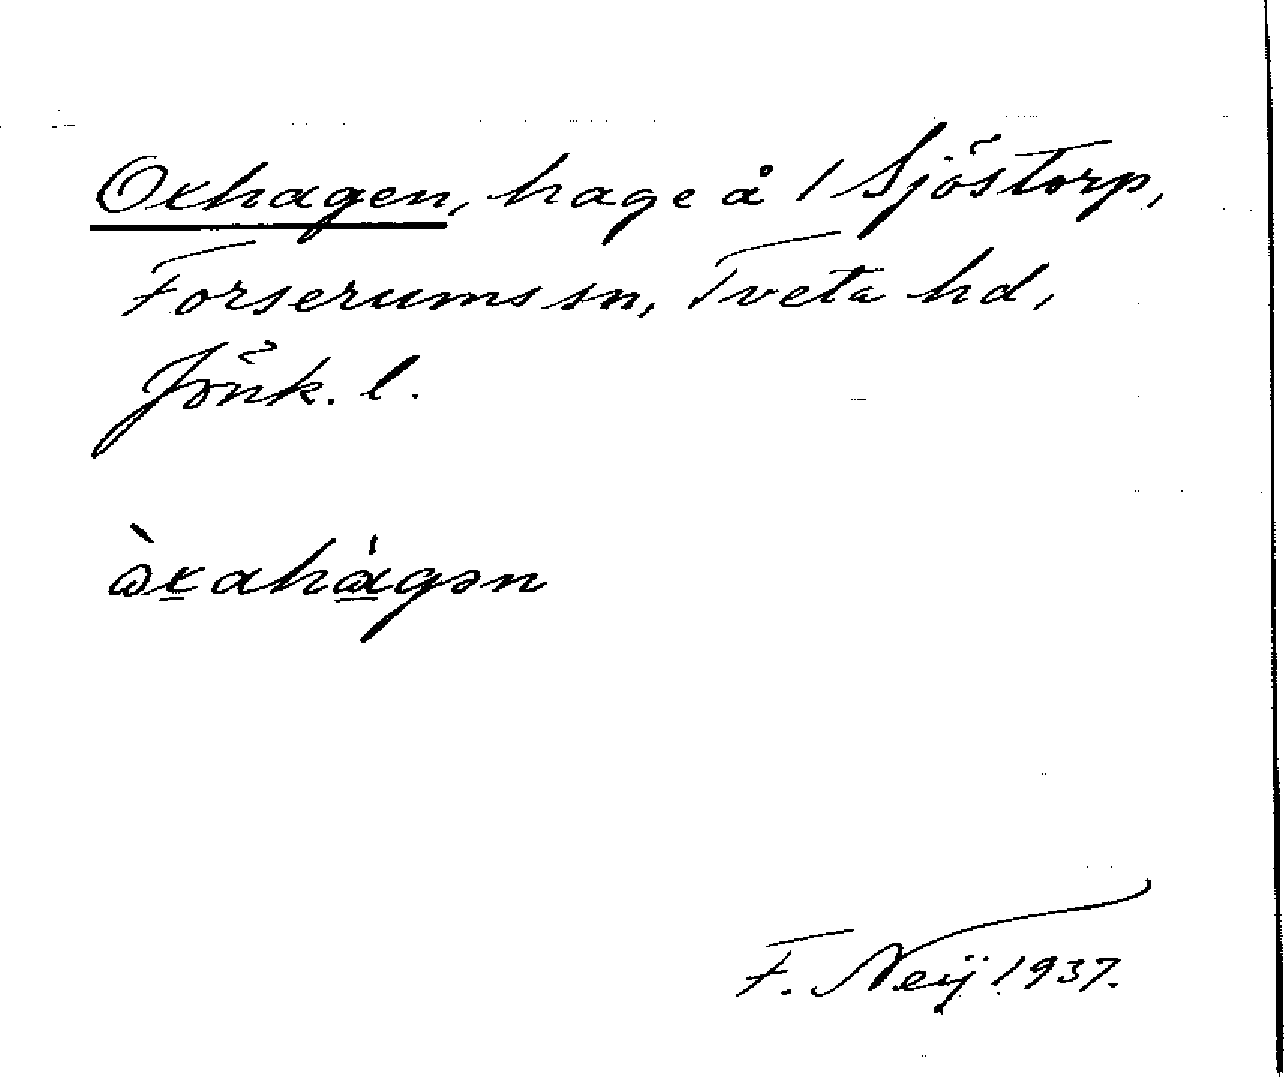 Oxhagen, hage å 1 Sjöstorp,
Forserums sn, Tveta hd,
Jönk. l.
ὼxahágən
F. Neij 1937.